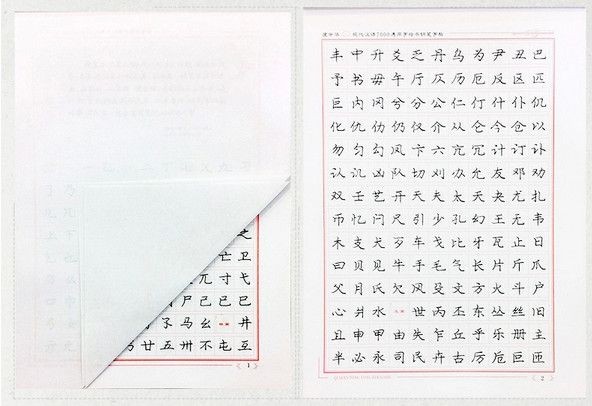 之
亡卫
兀寸弋
尸己已巳
马幺井
廿五卅不屯互
1
现代汉语7000通用字楷书钢笔字帖
丰中升爻乏丹乌为尹丑巴
予书毋午厅仄历厄反区匹
巨内冈兮分公仁仃什仆仉
化仇仂仍仅介从仑今仓以
勿匀勾凤卞六亢冗计订讣
认讥凶队切刈办允友邓劝
双壬艺开天夫太夭央尤扎
币忆闩尺引少孔幻王无韦
木支犬歹车戈比牙瓦止日
曰贝见牛手毛气长片斤爪
父月氏欠风殳文方火斗户
心爿水世丙丕东丛丝旧
且申甲由失乍丘乎乐册主
半必永司民卉古厉卮叵匝
2